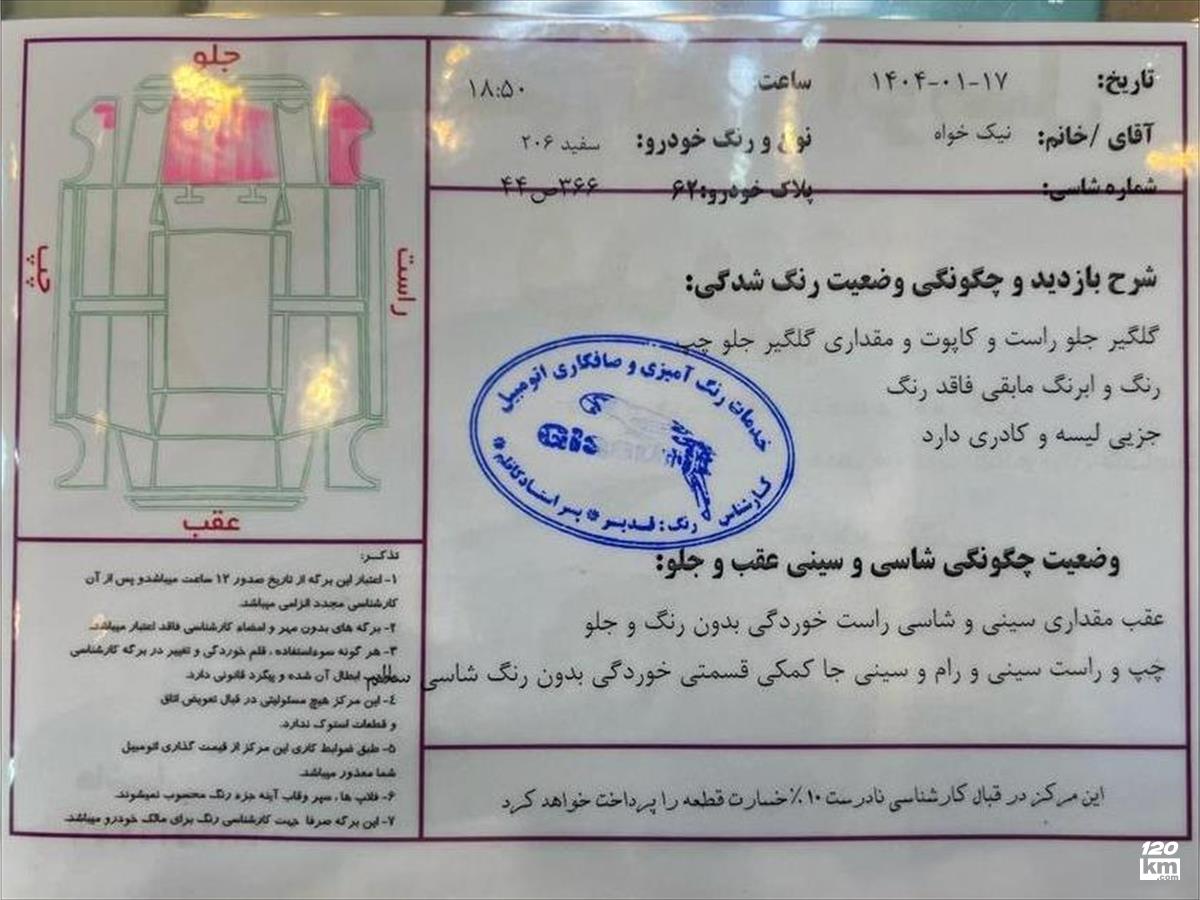 تاریخ: ۱۴۰۴-۰۱-۱۷ ساعت: ۱۸:۵۰
آقای /خانم: نیک خواه نوع و رنگ خودرو: سفید ۲۰۶
شماره شاسی: پلاک خودرو:۶۲ ۳۶۶ص۴۴
شرح بازدید و چگونگی وضعیت رنگ شدگی:
گلگیر جلو راست و کاپوت و مقداری گلگیر جلو چپ
رنگ و ابرنگ مابقی فاقد رنگ
جزیی لیسه و کادری دارد
خدمات رنگ آمیزی و صافکاری اتومبیل
کارشناس رنگ: قدیر * پسر استادکاظم *
وضعیت چگونگی شاسی و سینی عقب و جلو:
عقب مقداری سینی و شاسی راست خوردگی بدون رنگ و جلو
چپ و راست سینی و رام و سینی جا کمکی قسمتی خوردگی بدون رنگ شاسی سالم
این مرکز در قبال کارشناسی نادرست ۱۰٪ خسارت قطعه را پرداخت خواهد کرد
جلو
چپ
راست
عقب
تذکر:
۱- اعتبار این برگه از تاریخ صدور ۱۲ ساعت میباشدو پس از آن
کارشناسی مجدد الزامی میباشد.
۲- برگه های بدون مهر و امضاء کارشناسی فاقد اعتبار میباشد.
۳- هر گونه سوءاستفاده ، قلم خوردگی و تغییر در برگه کارشناسی
ابطال آن شده و پیگرد قانونی دارد.
٤- این مرکز هیچ مسئولیتی در قبال تعویض اتاق
و قطعات استوک ندارد.
۵- طبق ضوابط کاری این مرکز از قیمت گذاری اتومبیل
شما معذور میباشد.
۶- فلاپ ها ، سپر وقاب آینه جزء رنگ محسوب نمیشوند.
۷- این برگه صرفا جهت کارشناسی رنگ برای مالک خودرو میباشد.
120
km
.com